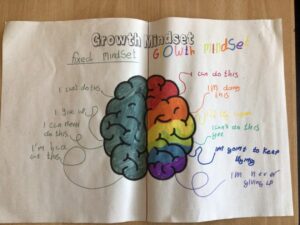 Growth Mindset
fixed mindset
Growth mindset
I can't do this
I give up
I can never
do this
I'm
at this
I can do this
I'm doing
this
I can't do this
yet
Im going to keep
trying
I'm never
giving up